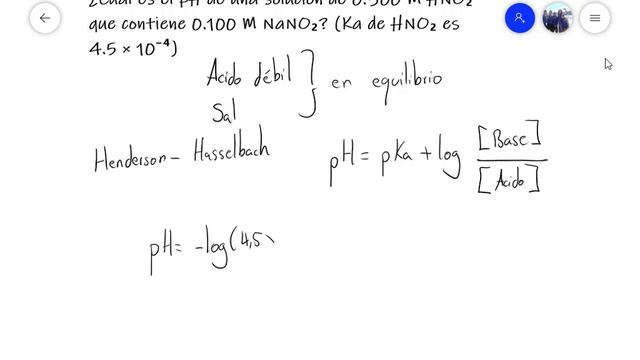 ¿Cuál es el pH de una solución de 0.500 M HNO₂
que contiene 0.100 M NaNO₂? (Ka de HNO₂ es
4.5 × 10⁻⁴)
Acido débil
Sal
en equilibrio
Henderson - Hasselbach
pH = pKa + log [Base] / [Acido]
pH = -log(4,5